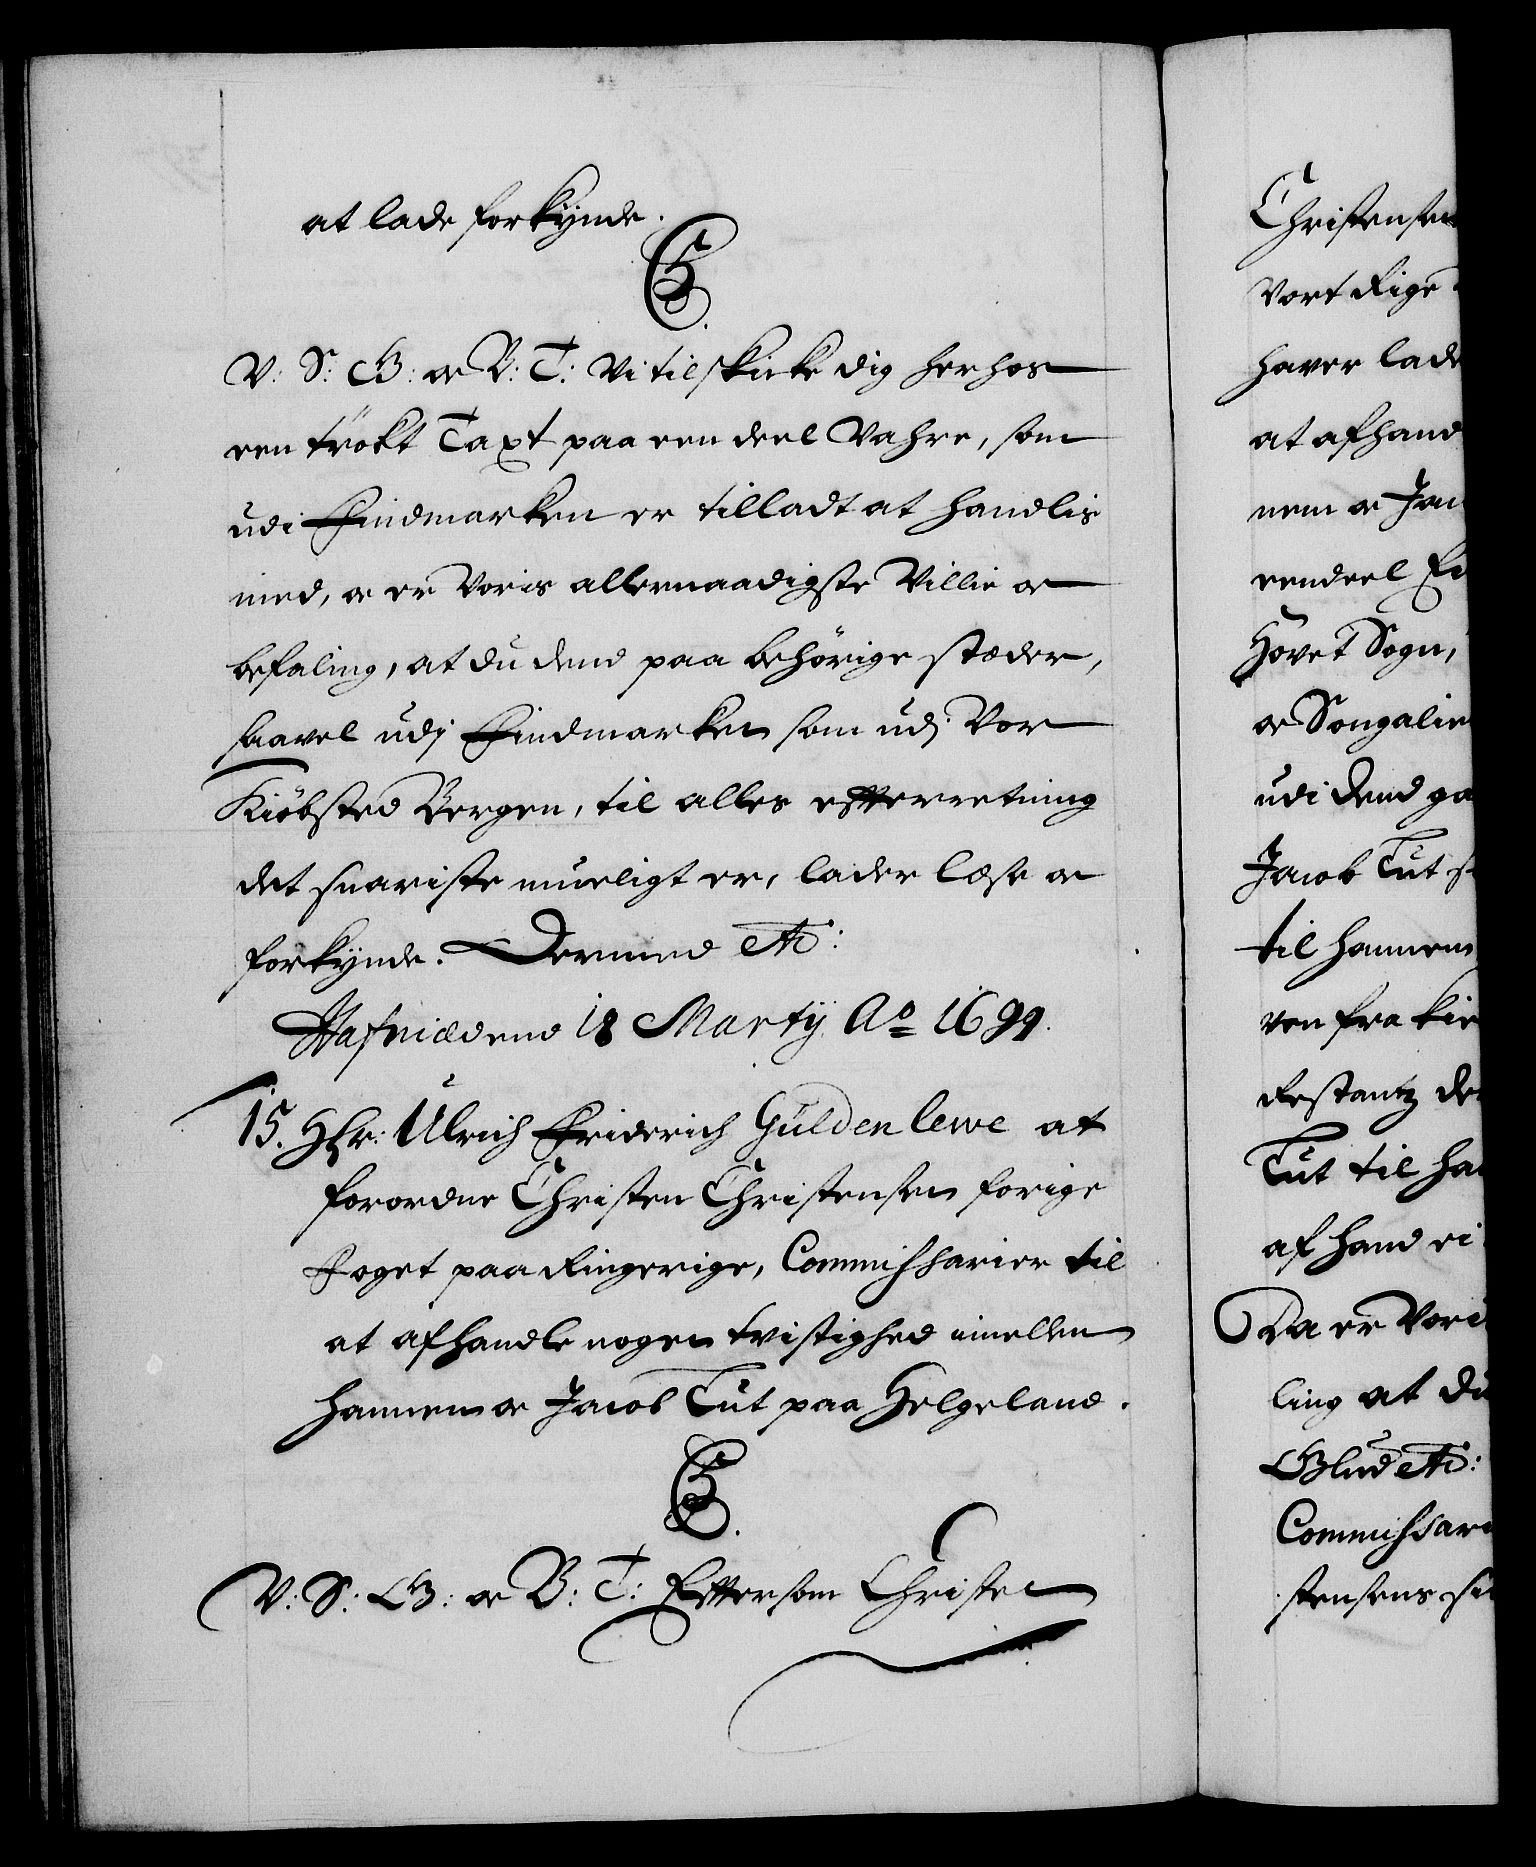 at lade forkÿnde.
C5.
V: S: G: og B: T: Vi tilskicke dig herhos
een trökt Taxt paa een deel Vahre, som
udi Findmarken er tilladt at handlis
med, og er Voris allernaadigste Villie og
befaling, at du dend paa behörige stæder,
saavel udj Findmarken som udj Vor
Kiöbsted Bergen, til alles efterretning
det snariste mueligt er, lader læse og
forkÿnde. Dermed etc:
Hafniæ dend 18 Martÿ Ao 1699.
15. Hr: Ulrich Friderich Gülden lewe at
forordne Christen Christensen forige
Foget paa Ringerige, Commissarier til
at afhandle nogen tvistighed imellem
hannem og Jacob Tut paa Helgeland.
C5.
V: S: G: og B: T: Eftersom Christen
Christensen
Vort Rige
haver lade
at afhand
nem og Jac
eendeel
Hövet Sogn,
og Songalie
udi dend ga
Jacob Tut
til hannem
ven fra
Restantz de
Tut til ha
af hand ei
Da er Vori
ling at du
Glud etc:
Commissari
stensens